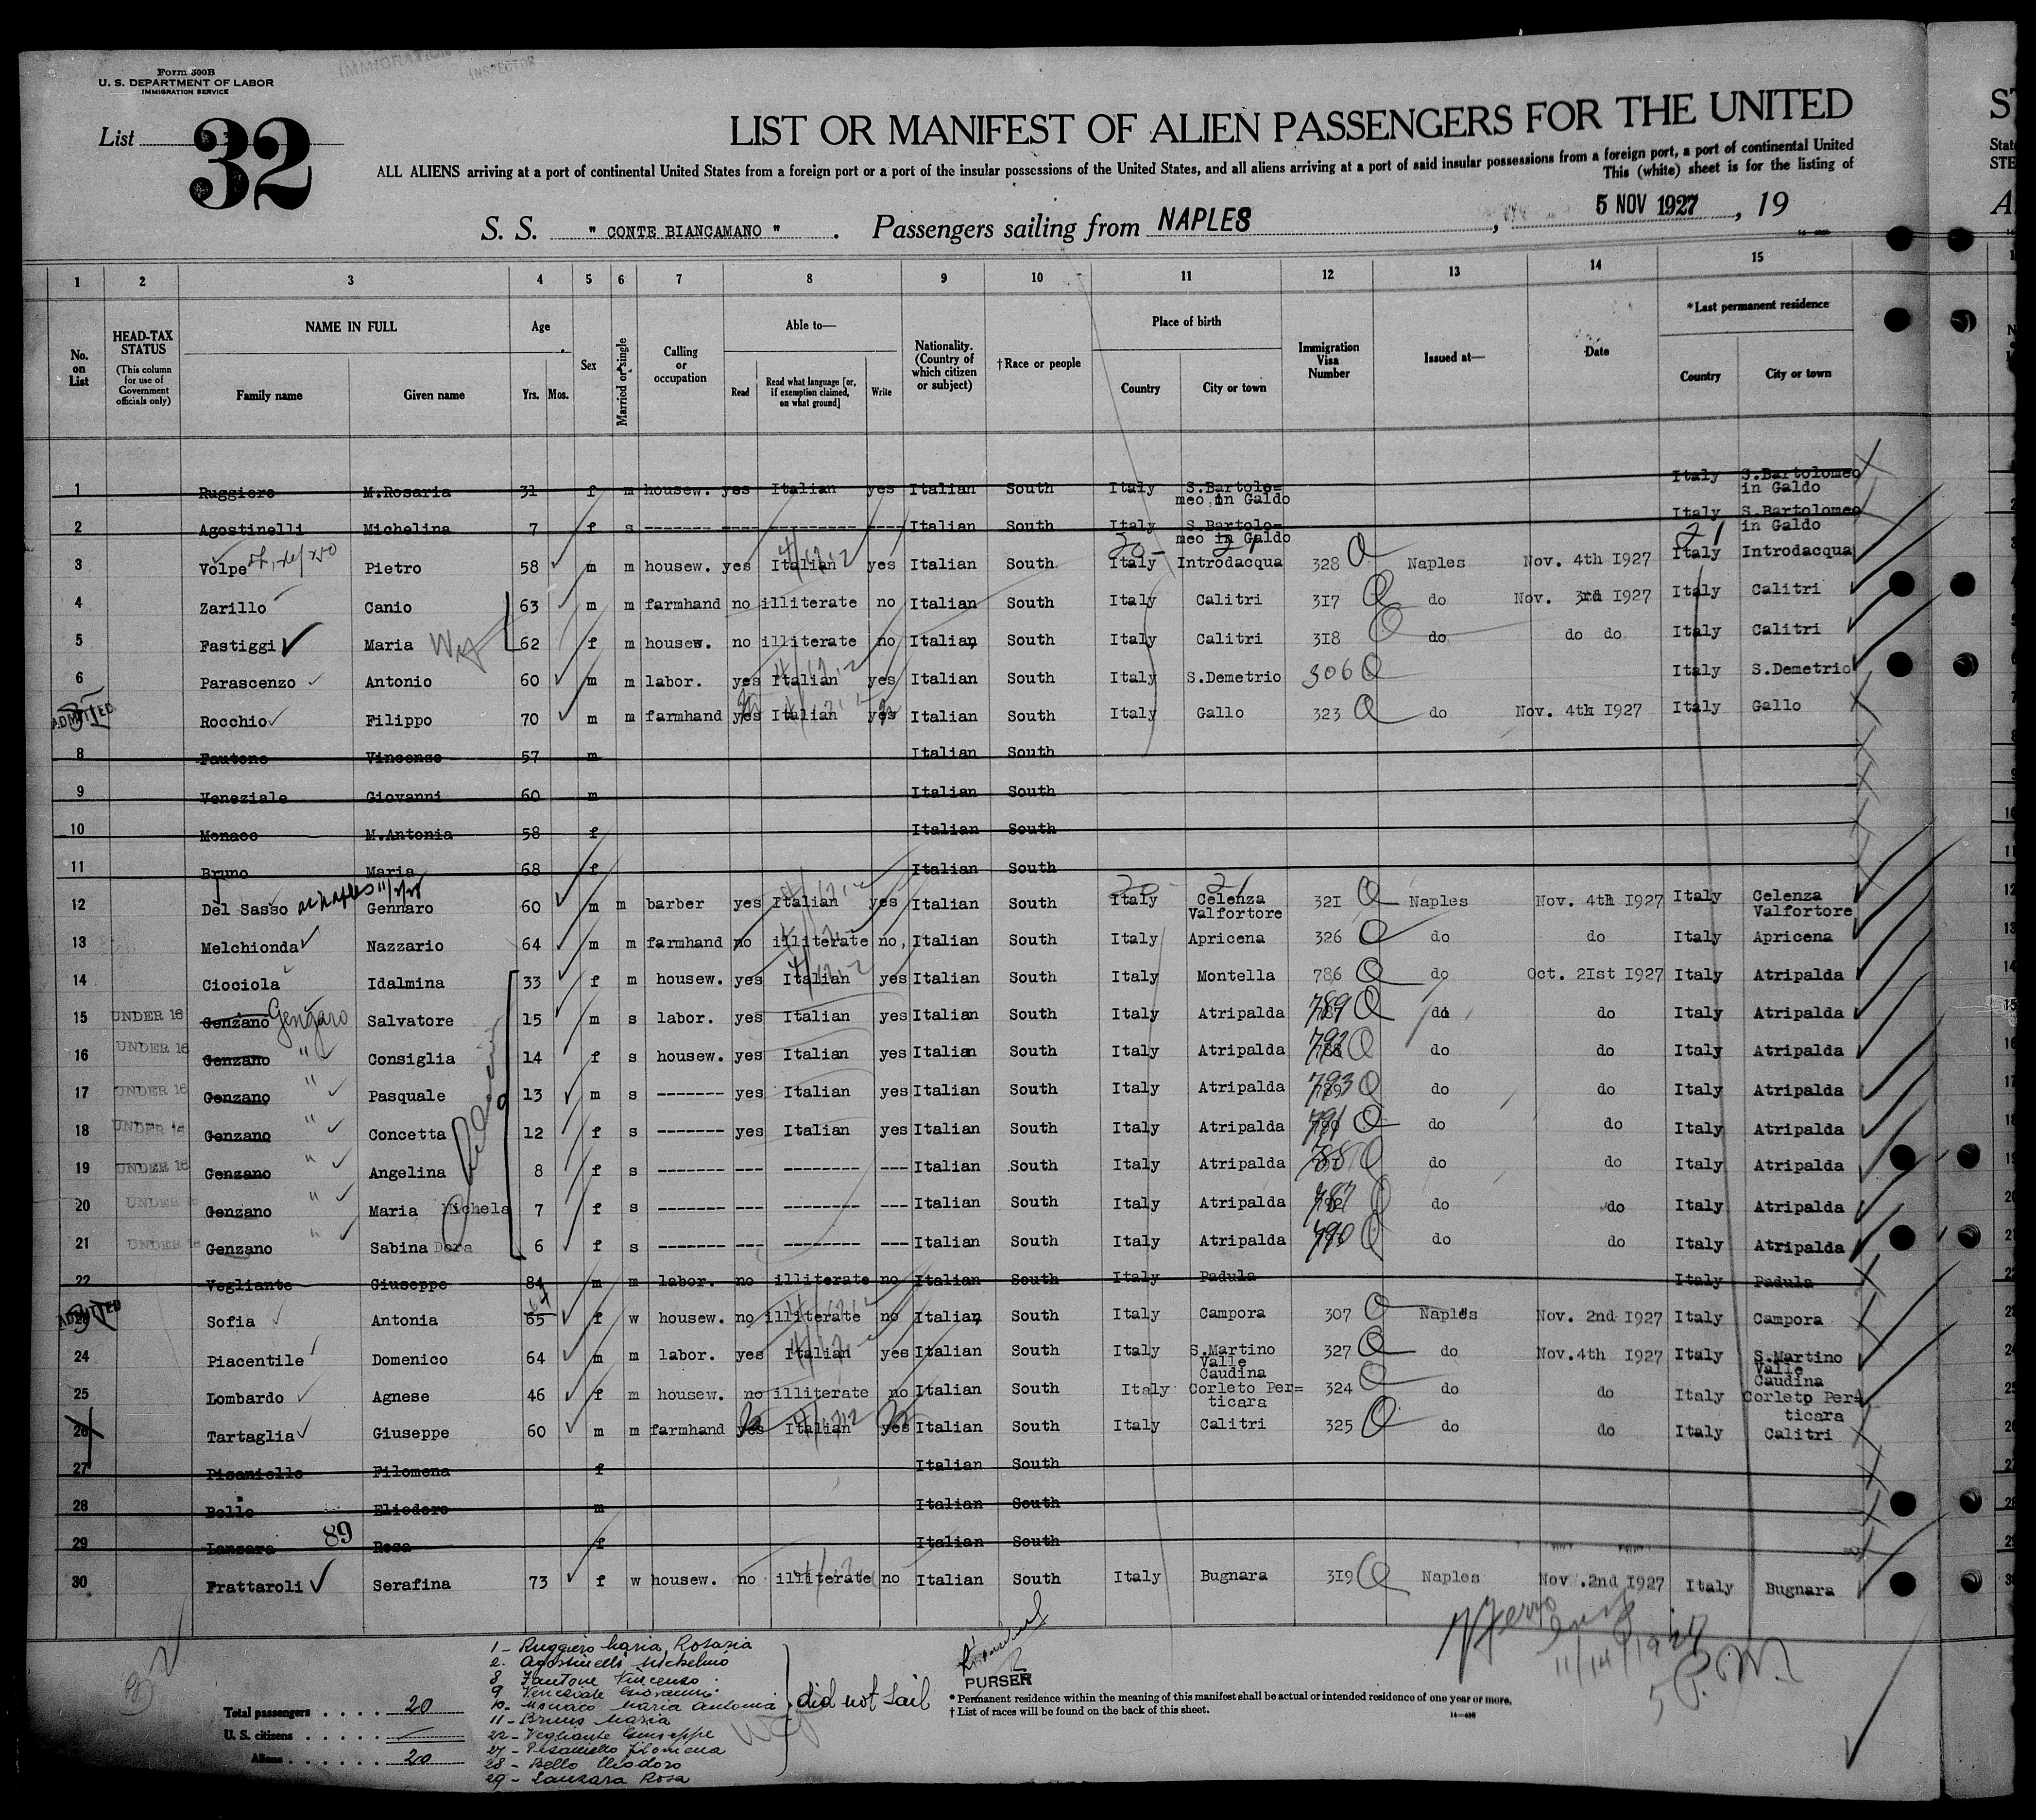 Form 500B
U. S. DEPARTMENT OF LABOR
IMMIGRATION SERVICE
IMMIGRATION
INSPECTOR
List 32
LIST OR MANIFEST OF ALIEN PASSENGERS FOR THE UNITED
ALL ALIENS arriving at a port of continental United States from a foreign port or a port of the insular possessions of the United States, and all aliens arriving at a port of said insular possessions from a foreign port, a port of continental United
This (white) sheet is for the listing of
S. S. " CONTE BIANCAMANO " . Passengers sailing from NAPLES , 5 NOV 1927 , 19
1 2 3 4 5 6 7 8 9 10 11 12 13 14 15
No. on List
HEAD-TAX STATUS (This column for use of Government officials only)
NAME IN FULL Family name Given name
Age Yrs. Mos.
Sex
Married or single
Calling or occupation
Able to— Read Read what language [or, if exemption claimed, on what ground] Write
Nationality. (Country of which citizen or subject)
†Race or people
Place of birth Country City or town
Immigration Visa Number
Issued at—
Date
*Last permanent residence Country City or town
1 Ruggiero M.Rosaria 31 f m housew. yes Italian yes Italian South Italy S.Bartolo= meo in Galdo Italy S.Bartolomeo in Galdo
2 Agostinelli Michelina 7 f s ------- ---- --------- ---- Italian South Italy S.Bartolo= meo in Galdo Italy S.Bartolomeo in Galdo
3 Volpe Pietro 58 m m housew. yes Italian yes Italian South Italy Introdacqua 328 Naples Nov. 4th 1927 Italy Introdacqua
4 Zarillo Canio 63 m m farmhand no illiterate no Italian South Italy Calitri 317 do Nov. 3rd 1927 Italy Calitri
5 Fastiggi Maria 62 f m housew. no illiterate no Italian South Italy Calitri 318 do do do Italy Calitri
6 Parascenzo Antonio 60 m m labor. yes Italian yes Italian South Italy S.Demetrio 306 Italy S.Demetrio
ADMITTED Rocchio Filippo 70 m m farmhand yes Italian yes Italian South Italy Gallo 323 do Nov. 4th 1927 Italy Gallo
8 Fautone Vincenso 57 m Italian South
9 Veneziale Giovanni 60 m Italian South
10 Monaco M.Antonia 58 f Italian South
11 Bruno Maria 68 f Italian South
12 Del Sasso Gennaro 60 m m barber yes Italian yes Italian South Italy Celenza Valfortore 321 Naples Nov. 4th 1927 Italy Celenza Valfortore
13 Melchionda Nazzario 64 m m farmhand no illiterate no, Italian South Italy Apricena 326 do do Italy Apricena
14 Ciociola Idalmina 33 f m housew. yes Italian yes Italian South Italy Montella 786 do Oct. 21st 1927 Italy Atripalda
15 UNDER 16 Genzano Genzaro Salvatore 15 m s labor. yes Italian yes Italian South Italy Atripalda 789 do do Italy Atripalda
16 UNDER 16 Genzano " Consiglia 14 f s housew. yes Italian yes Italian South Italy Atripalda 792 do do Italy Atripalda
17 UNDER 16 Genzano " Pasquale 13 m s ------- yes Italian yes Italian South Italy Atripalda 793 do do Italy Atripalda
18 UNDER 16 Genzano " Concetta 12 f s ------- yes Italian yes Italian South Italy Atripalda 791 do do Italy Atripalda
19 UNDER 16 Genzano " Angelina 8 f s ------- --- -------- --- Italian South Italy Atripalda 788 do do Italy Atripalda
20 UNDER 16 Genzano " Maria Michela 7 f s ------- --- -------- --- Italian South Italy Atripalda 787 do do Italy Atripalda
21 UNDER 16 Genzano " Sabina Dora 6 f s ------- --- -------- --- Italian South Italy Atripalda 790 do do Italy Atripalda
22 Vegliante Giuseppe 84 m m labor. no illiterate no Italian South Italy Padula Italy Padula
ADMITTED Sofia Antonia 65 f w housew. no illiterate no Italian South Italy Campora 307 Naples Nov. 2nd 1927 Italy Campora
24 Piacentile Domenico 64 m m labor. yes Italian yes Italian South Italy S.Martino Valle Caudina 327 do Nov.4th 1927 Italy S.Martino Valle Caudina
25 Lombardo Agnese 46 f m housew. no illiterate no Italian South Italy Corleto Per= ticara 324 do do Italy Corleto Per= ticara
26 Tartaglia Giuseppe 60 m m farmhand yes Italian yes Italian South Italy Calitri 325 do do Italy Calitri
27 Pisaniello Filomena f Italian South
28 Bello Eliodoro m Italian South
29 Lanzara 89 Rosa f Italian South
30 Frattaroli Serafina 73 f w housew. no illiterate no Italian South Italy Bugnara 319 Naples Nov.2nd 1927 Italy Bugnara
1 - Ruggiero Maria Rosaria
2. Agostinelli Michelina
8 Fautone Vincenso
9 Veneziale Giovanni
10 - Monaco Maria Antonia
11 - Bruno Maria
22 - Vegliante Giuseppe
27 - Pisaniello Filomena
28 - Bello Eliodoro
29 - Lanzara Rosa
did not sail
Total passengers . . . . 20
U. S. citizens . . . . .
Aliens . . . . . . . 20
PURSER
* Permanent residence within the meaning of this manifest shall be actual or intended residence of one year or more.
† List of races will be found on the back of this sheet.
11/14/1927